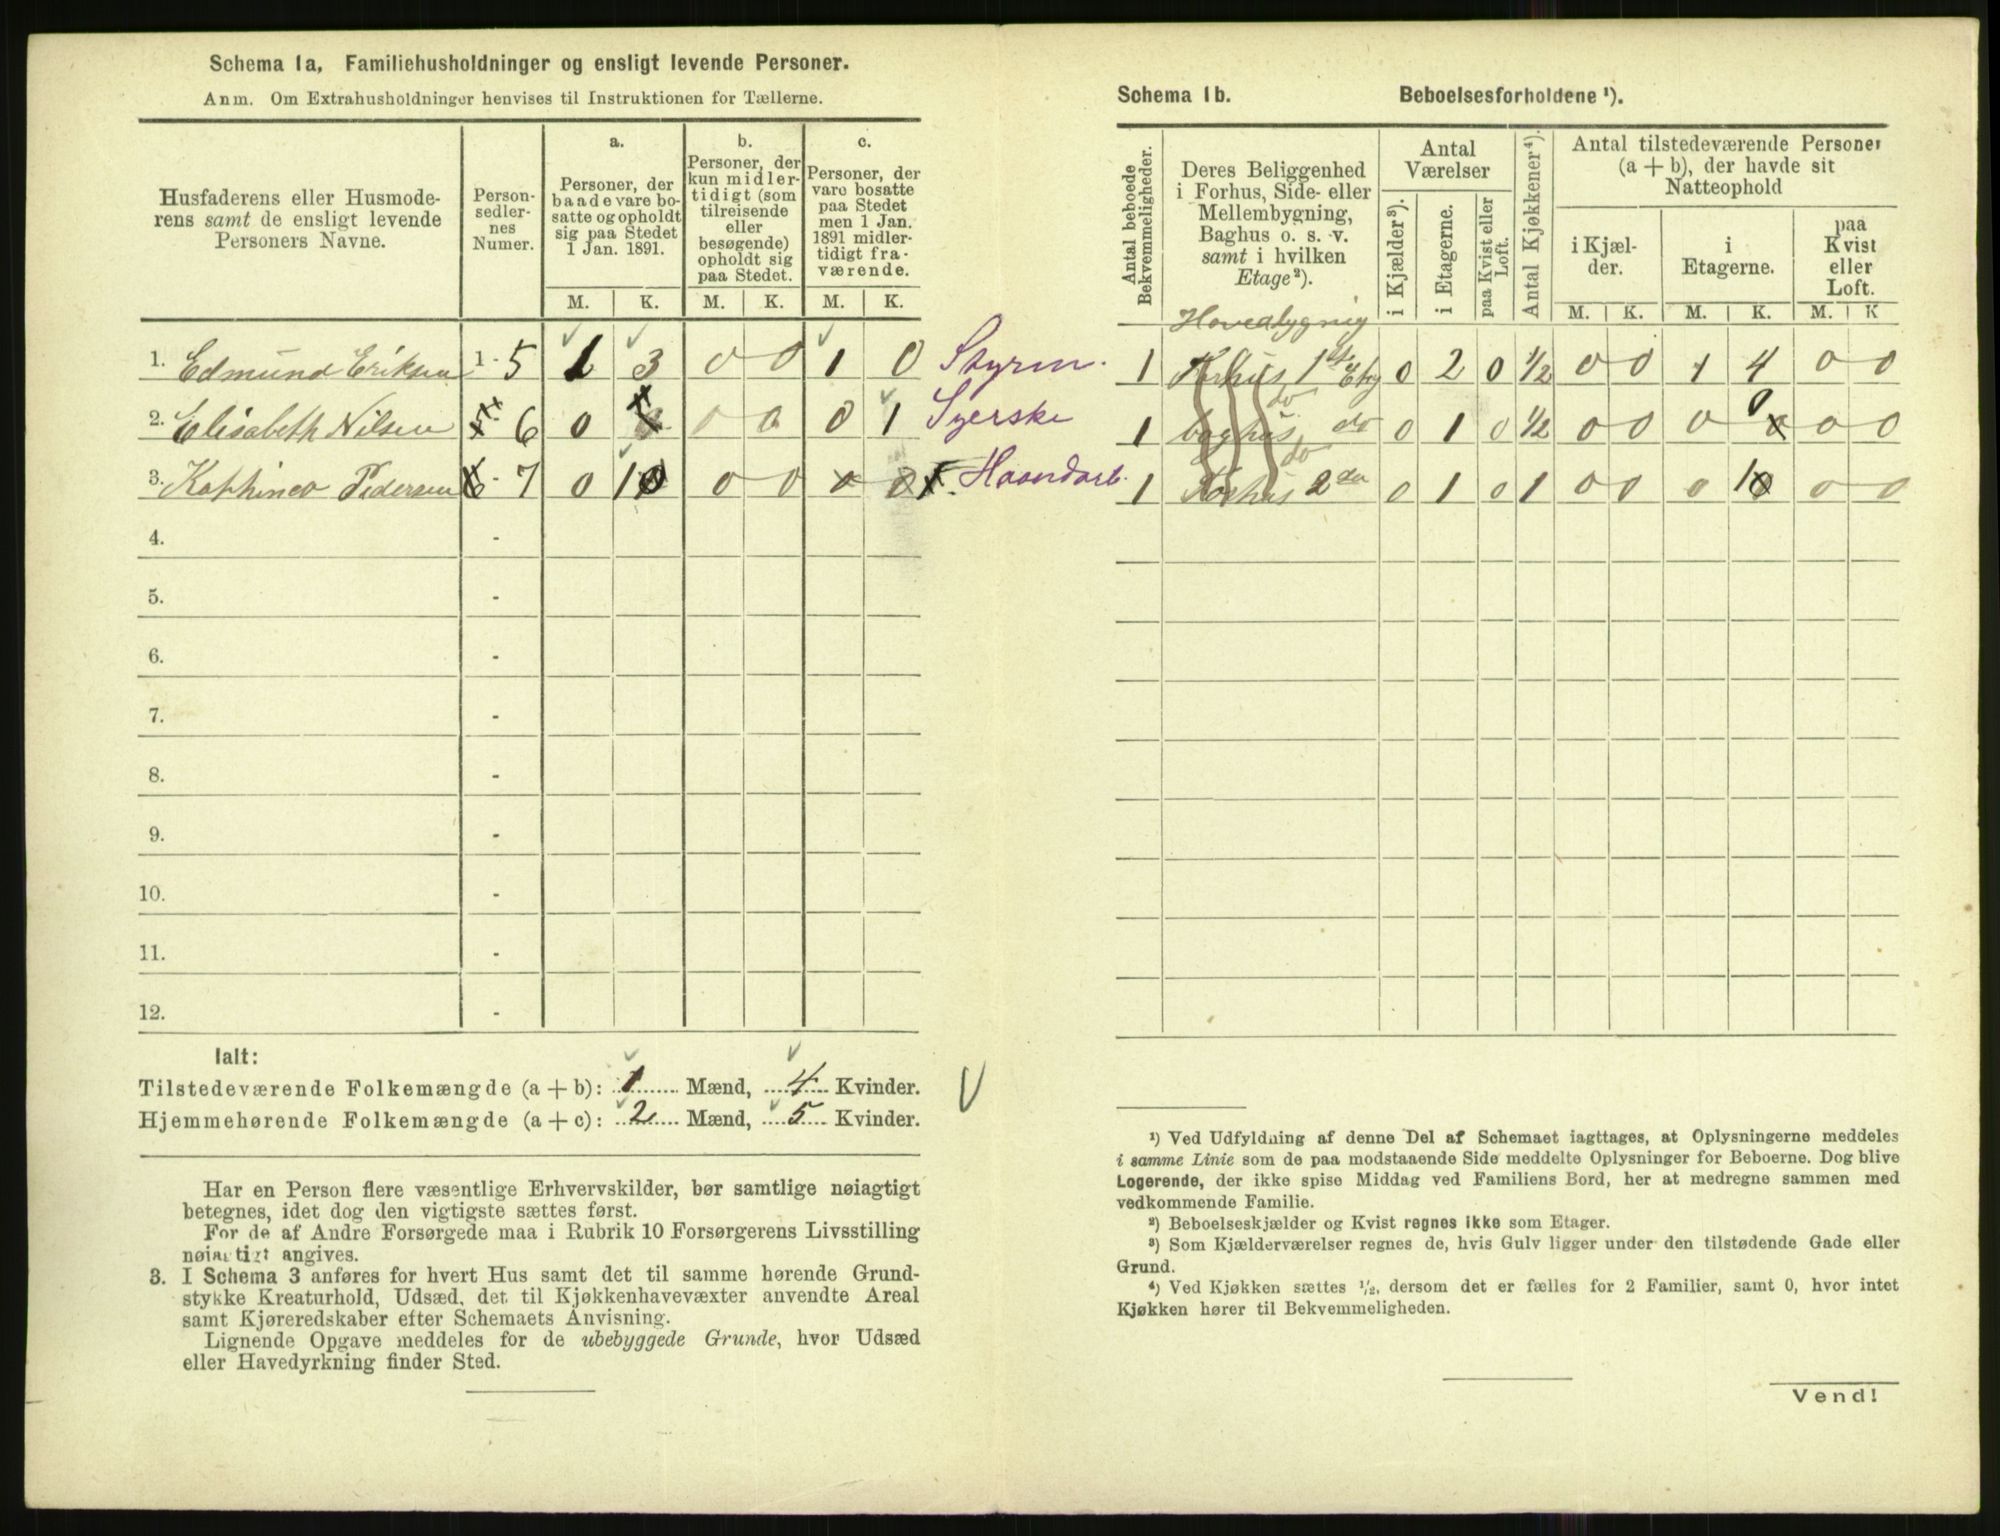 Schema 1a, Familiehusholdninger og ensligt levende Personer.
Anm. Om Extrahusholdninger henvises til Instruktionen for Tællerne.
Husfaderens eller Husmode-
rens samt de ensligt levende
Personers Navne.
Person-
sedler-
nes
Numer.
a.
Personer, der
baade vare bo-
satte og opholdt
sig paa Stedet
1 Jan. 1891.
b.
Personer, der
kun midler-
tidigt (som
tilreisende
eller
besøgende)
opholdt sig
paa Stedet.
c.
Personer, der
vare bosatte
paa Stedet
men 1 Jan.
1891 midler-
tidigt fra-
værende.
M. K. M. K. M. K.
1. Edmund Eriksen 1 - 5 1 3 0 0 1 0 Styrm.
2. Elisabeth Nilsen - 6 0 0 0 0 1 Syerske
3. Pedersen - 7 0 1 0 0 0 Haandarb.
4. -
5. -
6. -
7. -
8. -
9. -
10. -
11. -
12. -
Ialt:
Tilstedeværende Folkemængde (a + b): 1 Mænd, 4 Kvinder.
Hjemmehørende Folkemængde (a + c): 2 Mænd, 5 Kvinder.
Har en Person flere væsentlige Erhvervskilder, bør samtlige nøiagtigt
betegnes, idet dog den vigtigste sættes først.
For de af Andre Forsørgede maa i Rubrik 10 Forsørgerens Livsstilling
nøiagtigt angives.
3. I Schema 3 anføres for hvert Hus samt det til samme hørende Grund-
stykke Kreaturhold, Udsæd, det til Kjøkkenhavevæxter anvendte Areal
samt Kjøreredskaber efter Schemaets Anvisning.
Lignende Opgave meddeles for de ubebyggede Grunde, hvor Udsæd
eller Havedyrkning finder Sted.
Schema 1b. Beboelsesforholdene ¹).
Antal beboede
Bekvemmeligheder.
Deres Beliggenhed
i Forhus, Side- eller
Mellembygning,
Baghus o. s. v.
samt i hvilken
Etage²).
Antal
Værelser
i Kjælder³).
i Etagerne.
paa Kvist eller
Loft.
Antal Kjøkkener⁴).
Antal tilstedeværende Personer
(a + b), der havde sit
Natteophold
i Kjæl-
der.
i
Etagerne.
paa
Kvist
eller
Loft.
M. K. M. K. M. K
Hovedbygnig
1 Forhus 1ste Etg 0 2 0 1/2 0 0 1 4 0 0
do
1 baghus do 0 1 0 1/2 0 0 0 0 0 0
do
1 Forhus 2den 0 1 0 1 0 0 0 1 0 0
¹) Ved Udfyldning af denne Del af Schemaet iagttages, at Oplysningerne meddeles
i samme Linie som de paa modstaaende Side meddelte Oplysninger for Beboerne. Dog blive
Logerende, der ikke spise Middag ved Familiens Bord, her at medregne sammen med
vedkommende Familie.
²) Beboelseskjælder og Kvist regnes ikke som Etager.
³) Som Kjælderværelser regnes de, hvis Gulv ligger under den tilstødende Gade eller
Grund.
⁴) Ved Kjøkken sættes ½, dersom det er fælles for 2 Familier, samt 0, hvor intet
Kjøkken hører til Bekvemmeligheden.
Vend!